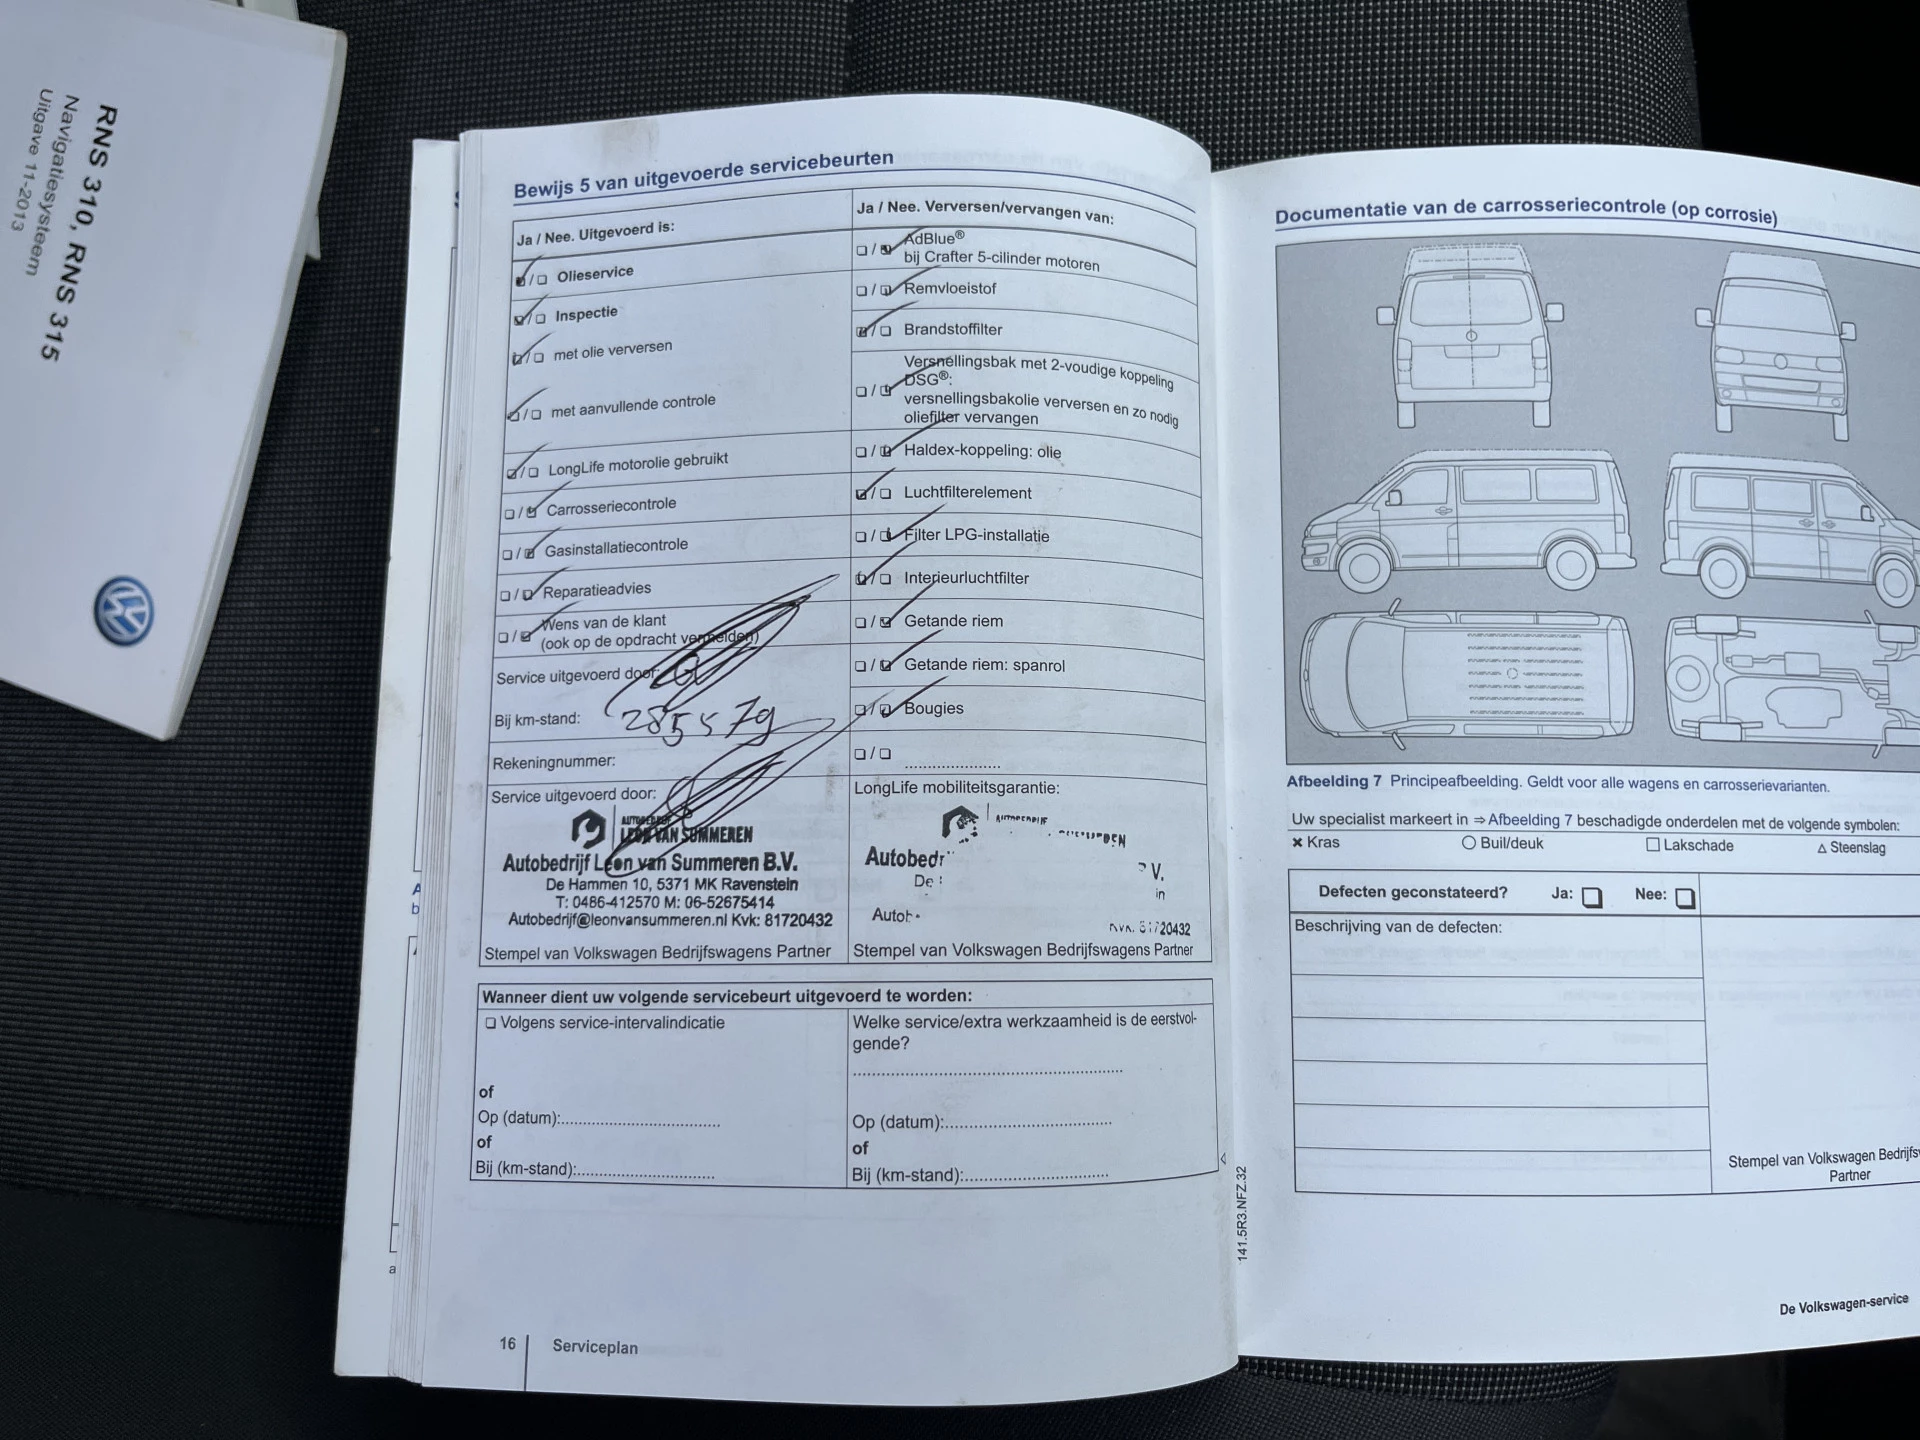 RNS 310, RNS 315
Navigatiesysteem
Uitgave 11-2013
Bewijs 5 van uitgevoerde servicebeurten
Ja / Nee. Uitgevoerd is:
❏/❏ Olieservice
❏/❏ Inspectie
❏/❏ met olie verversen
❏/❏ met aanvullende controle
❏/❏ LongLife motorolie gebruikt
❏/❏ Carrosseriecontrole
❏/❏ Gasinstallatiecontrole
❏/❏ Reparatieadvies
❏/❏ Wens van de klant
(ook op de opdracht vermelden)
Service uitgevoerd door:
Bij km-stand: 285579
Rekeningnummer:
Service uitgevoerd door:
AUTOBEDRIJF
LEON VAN SUMMEREN
Autobedrijf Leon van Summeren B.V.
De Hammen 10, 5371 MK Ravenstein
T: 0486-412570 M: 06-52675414
Autobedrijf@leonvansummeren.nl Kvk: 81720432
Stempel van Volkswagen Bedrijfswagens Partner
Ja / Nee. Verversen/vervangen van:
❏/❏ AdBlue®
bij Crafter 5-cilinder motoren
❏/❏ Remvloeistof
❏/❏ Brandstoffilter
Versnellingsbak met 2-voudige koppeling
❏/❏ DSG®:
versnellingsbakolie verversen en zo nodig
oliefilter vervangen
❏/❏ Haldex-koppeling: olie
❏/❏ Luchtfilterelement
❏/❏ Filter LPG-installatie
❏/❏ Interieurluchtfilter
❏/❏ Getande riem
❏/❏ Getande riem: spanrol
❏/❏ Bougies
❏/❏ .....................
LongLife mobiliteitsgarantie:
Stempel van Volkswagen Bedrijfswagens Partner
Wanneer dient uw volgende servicebeurt uitgevoerd te worden:
❏ Volgens service-intervalindicatie
of
Op (datum):...................................
of
Bij (km-stand):..............................
Welke service/extra werkzaamheid is de eerstvol-
gende?
...........................................................
Op (datum):....................................
of
Bij (km-stand):...............................
141.5R3.NFZ.32
16 Serviceplan
Documentatie van de carrosseriecontrole (op corrosie)
Afbeelding 7 Principeafbeelding. Geldt voor alle wagens en carrosserievarianten.
Uw specialist markeert in ⇒ Afbeelding 7 beschadigde onderdelen met de volgende symbolen:
× Kras ○ Buil/deuk □ Lakschade △ Steenslag
Defecten geconstateerd? Ja: ❏ Nee: ❏
Beschrijving van de defecten:
Stempel van Volkswagen Bedrijfs
Partner
De Volkswagen-service